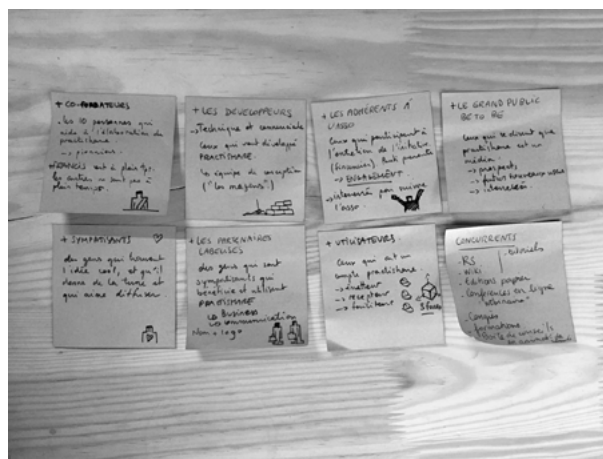 + CO-FONDATEURS
- les 10 personnes qui
aide à l'élaboration de
practishare.
→ pionniers
les autres ne sont pas à
plein temps.
+ LES DÉVELOPPEURS
→ Technique et commerciale
Ceux qui vont développé
PRACTISHARE.
les équipe de conception
("les maçons")
+ LES ADHÉRENTS À
L'ASSO
Ceux qui participent à
(financier)
→ ENGAGEMENT.
l'asso.
+ LE GRAND PUBLIC
BE TO BE
Ceux qui se disent que
practishare est un
médium.
→ prospect,
→ futurs nouveaux
→ intéressés.
+ SYMPATISANTS
des gens qui trouvent
l'idée cool, et qu'il
donne de la thune et
qui aime diffuser.
+ LES PARTENAIRES
LABELISÉS
des gens qui sont
sympatisants qui
bénéficie et utilisent
PRACTISHARE
Business
communication
Nom + logo
+ UTILISATEURS.
Ceux qui ont un
compte practishare.
→ émetteur
→ recepteur
→ fournisseur
5 faces
CONCURRENTS
- RS
- tutoriels
- Wiki
- Editions papier
- Conférences en ligne
"webinars"
- Congrès
- formations